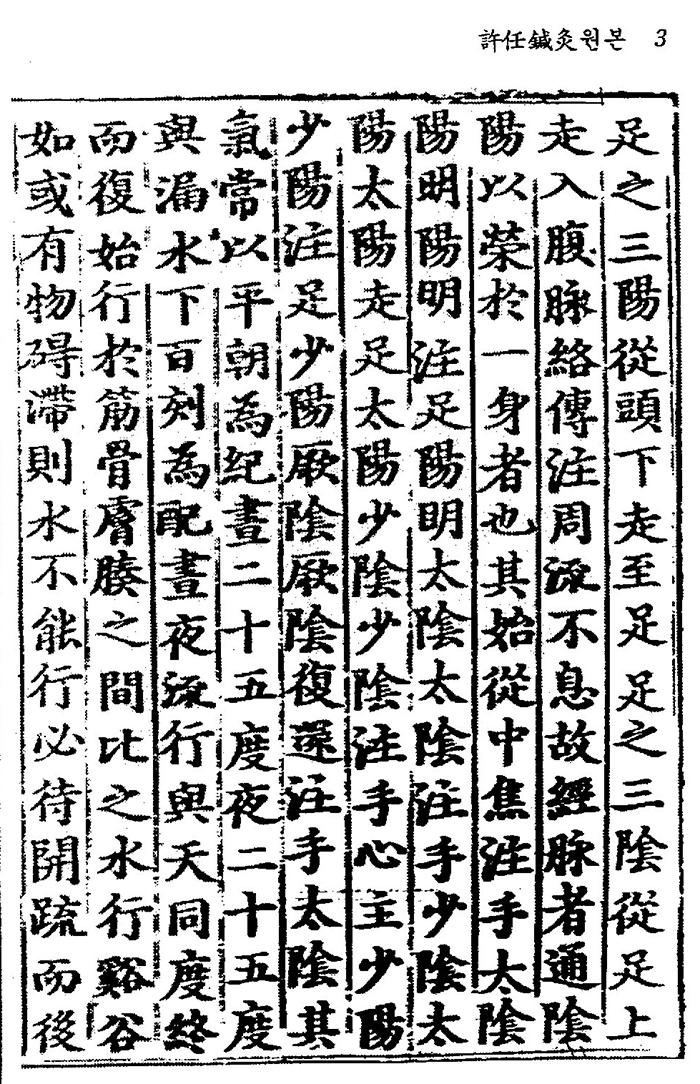 許任鍼灸원본 3
足之三陽從頭下走至足足之三陰從足上
走入腹脉絡傳注周流不息故經脉者通陰
陽以榮於一身者也其始從中焦注手太陰
陽明陽明注足陽明太陰太陰注手少陰太
陽太陽走足太陽少陰少陰注手心主少陽
少陽注足少陽厥陰厥陰復還注手太陰其
氣常以平朝為紀晝二十五度夜二十五度
與漏水下百刻為配晝夜流行與天同度終
而復始行於筋骨膚腠之間比之水行谿谷
如或有物碍滯則水不能行必待開疏而後